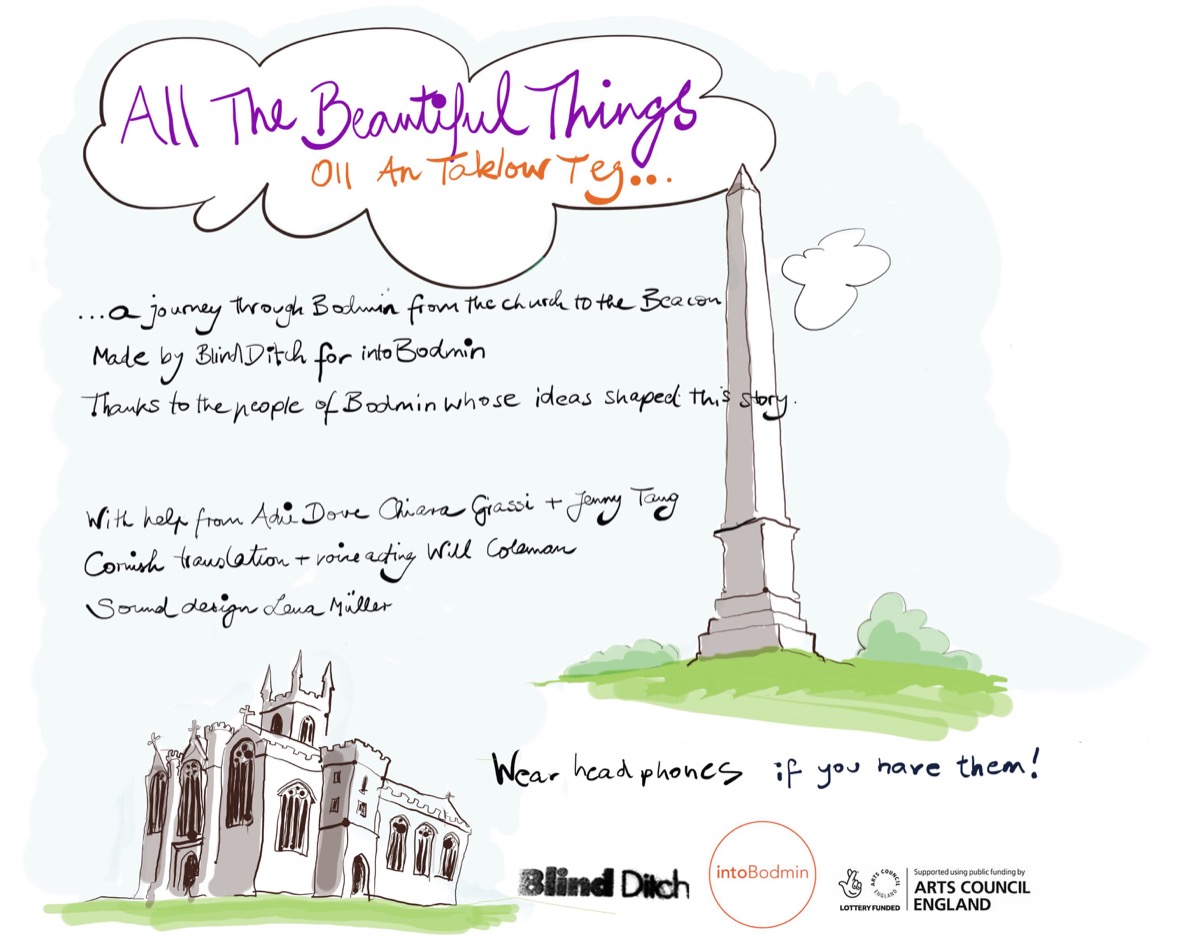 All The Beautiful Things
Oll An Taklow Teg...
...a journey through Bodmin from the church to the Beacon
Made by Blind Ditch for intoBodmin
Thanks to the people of Bodmin whose ideas shaped this story.
With help from Adie Dove Chiara Grassi + Jenny Tang
Cornish translation + voice acting Will Coleman
Sound design Lena Müller
Wear headphones if you have them!
Blind Ditch
intoBodmin
ARTS COUNCIL ENGLAND
LOTTERY FUNDED
Supported using public funding by
ARTS COUNCIL
ENGLAND